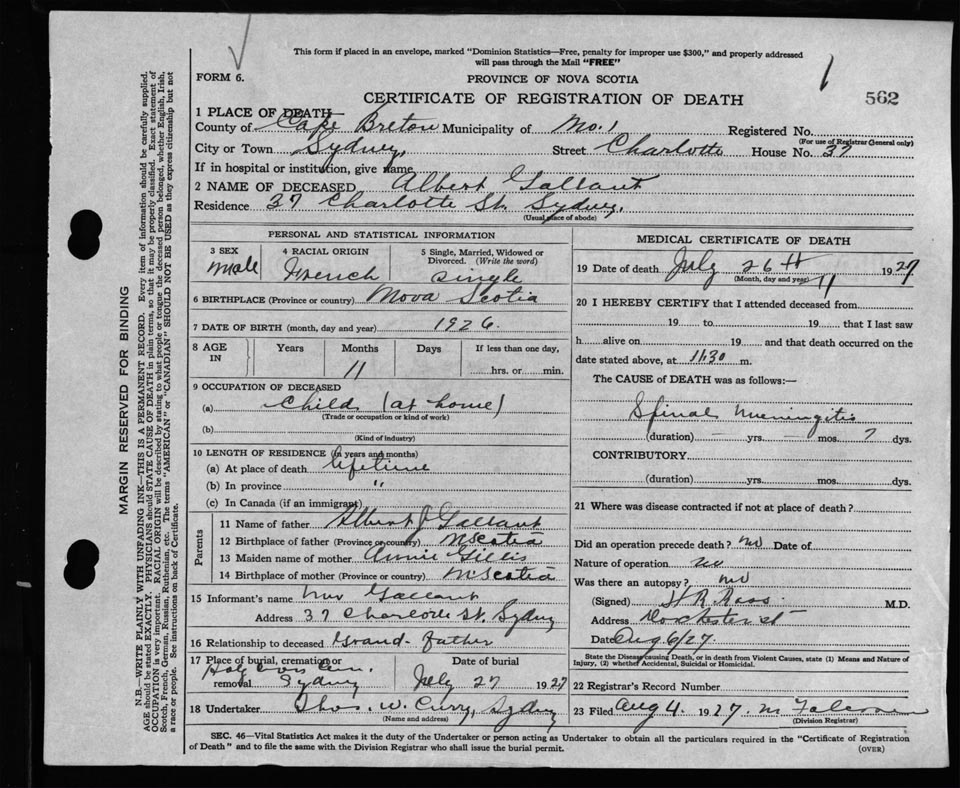 This form if placed in an envelope, marked "Dominion Statistics—Free, penalty for improper use $300," and properly addressed
will pass through the Mail "FREE"
FORM 6.
PROVINCE OF NOVA SCOTIA
CERTIFICATE OF REGISTRATION OF DEATH
562
1 PLACE OF DEATH
County of Cape Breton Municipality of No. 1 Registered No.
(For use of Registrar General only)
City or Town Sydney, Street Charlotte House No. 37
If in hospital or institution, give name
2 NAME OF DECEASED Albert Gallant
Residence 37 Charlotte St. Sydney.
(Usual place of abode)
PERSONAL AND STATISTICAL INFORMATION
3 SEX 4 RACIAL ORIGIN 5 Single, Married, Widowed or
Divorced. (Write the word)
male French Single
6 BIRTHPLACE (Province or country) Nova Scotia
7 DATE OF BIRTH (month, day and year) 1926.
8 AGE IN Years Months Days If less than one day,
11 hrs. or min.
9 OCCUPATION OF DECEASED
(a) Child (at home)
(Trade or occupation or kind of work)
(b)
(Kind of industry)
10 LENGTH OF RESIDENCE (in years and months)
(a) At place of death lifetime
(b) In province "
(c) In Canada (if an immigrant)
Parents
11 Name of father Albert J Gallant
12 Birthplace of father (Province or country) N Scotia
13 Maiden name of mother Annie Gillis
14 Birthplace of mother (Province or country) N Scotia
15 Informant's name Gallant
Address 37 Charlotte St. Sydney
16 Relationship to deceased Grand-father
17 Place of burial, cremation or removal Holy Cross Cem. Sydney
Date of burial July 27 1927
18 Undertaker Thos. W. Curry, Sydney
(Name and address)
MEDICAL CERTIFICATE OF DEATH
19 Date of death July 26th 1927
(Month, day and year)
20 I HEREBY CERTIFY that I attended deceased from
19 to 19 that I last saw
h alive on 19 and that death occurred on the
date stated above, at 11.30 m.
The CAUSE of DEATH was as follows:—
Spinal Meningitis
(duration) — yrs. — mos. 7 dys.
CONTRIBUTORY
(duration) yrs. mos. dys.
21 Where was disease contracted if not at place of death?
Did an operation precede death? no Date of
Nature of operation no
Was there an autopsy? no
(Signed) H R Ross M.D.
Address Dorchester St
Date Aug 6/27.
State the Disease causing Death, or in death from Violent Causes, state (1) Means and Nature of
Injury, (2) whether Accidental, Suicidal or Homicidal.
22 Registrar's Record Number
23 Filed Aug 4. 1927. M
(Division Registrar)
SEC. 46—Vital Statistics Act makes it the duty of the Undertaker or person acting as Undertaker to obtain all the particulars required in the "Certificate of Registration
of Death" and to file the same with the Division Registrar who shall issue the burial permit.
(OVER)
MARGIN RESERVED FOR BINDING
N.B.—WRITE PLAINLY WITH UNFADING INK—THIS IS A PERMANENT RECORD. Every item of information should be carefully supplied.
AGE should be stated EXACTLY. PHYSICIANS should STATE CAUSE OF DEATH in plain terms, so that it may be properly classified. Exact statement of
OCCUPATION is very important. RACIAL ORIGIN will be described by stating to what people or tongue the deceased person belonged, whether English, Irish,
Scotch, French, German, Russian, Ruthenian, etc. The terms "AMERICAN" or "CANADIAN" SHOULD NOT BE USED as they express citizenship but not
a race or people. See instructions on back of Certificate.